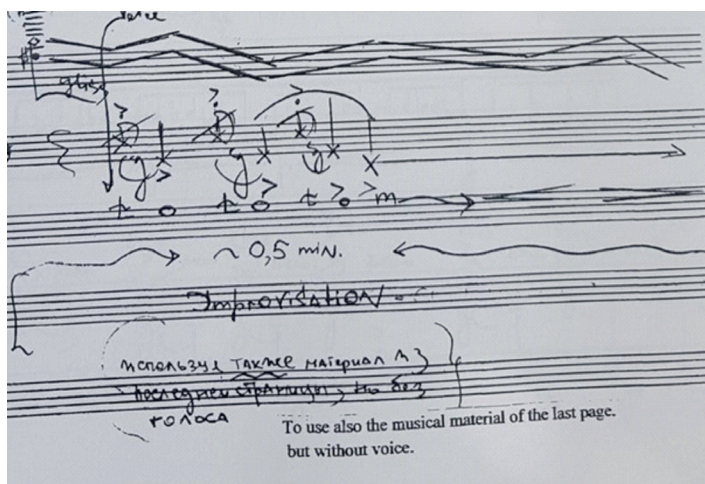 voice
gliss
t o t o t o m
~ 0,5 min.
Improvisation
используя также материал из
последней страницы, но без
голоса
To use also the musical material of the last page.
but without voice.